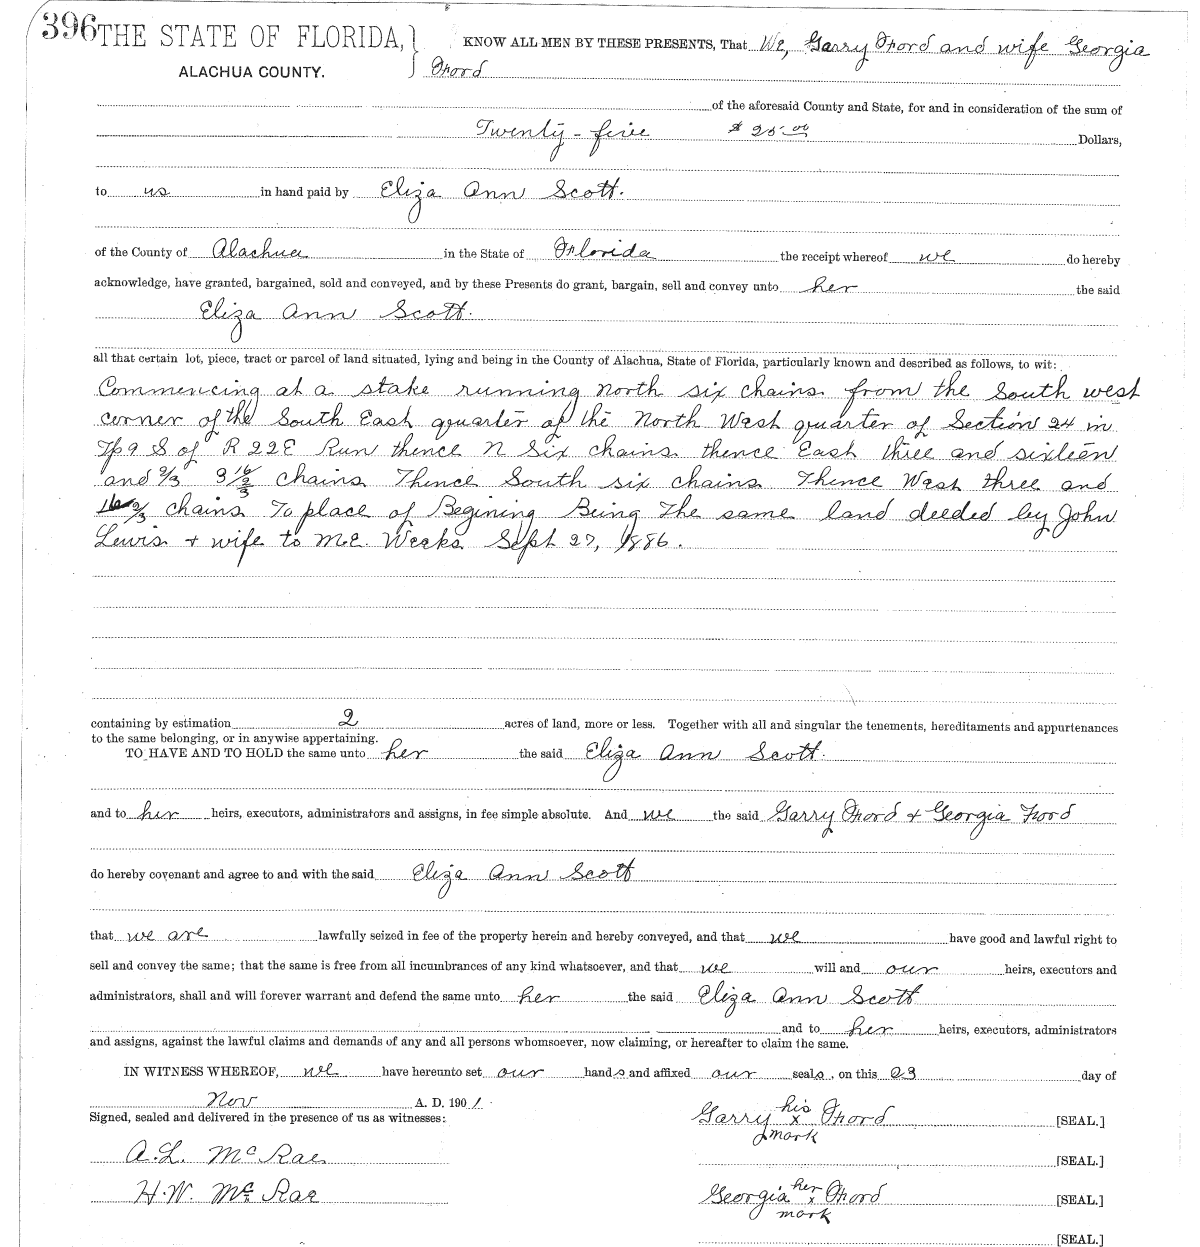 396 THE STATE OF FLORIDA, } KNOW ALL MEN BY THESE PRESENTS, That We, Garry Ford and wife Georgia
ALACHUA COUNTY. Ford
of the aforesaid County and State, for and in consideration of the sum of
Twenty-five $25.00 Dollars,
to us in hand paid by Eliza Ann Scott.
of the County of Alachua in the State of Florida the receipt whereof we do hereby
acknowledge, have granted, bargained, sold and conveyed, and by these Presents do grant, bargain, sell and convey unto her the said
Eliza Ann Scott.
all that certain lot, piece, tract or parcel of land situated, lying and being in the County of Alachua, State of Florida, particularly known and described as follows, to wit:
Commencing at a stake running north six chains from the South west
corner of the South East quarter of the North West quarter of Section 24 in
Tp 9 S of R 22 E Run thence N Six chains thence East three and sixteen
and 2/3 3 16/2/3 chains Thence South six chains Thence West three and
16 2/3 chains To place of Begining Being The same land deeded by John
Lewis + wife to M.E. Weeks Sept 27, 1886.
containing by estimation 2 acres of land, more or less. Together with all and singular the tenements, hereditaments and appurtenances
to the same belonging, or in anywise appertaining.
TO HAVE AND TO HOLD the same unto her the said Eliza Ann Scott.
and to her heirs, executors, administrators and assigns, in fee simple absolute. And we the said Garry Ford + Georgia Ford
do hereby covenant and agree to and with the said Eliza Ann Scott
that we are lawfully seized in fee of the property herein and hereby conveyed, and that we have good and lawful right to
sell and convey the same; that the same is free from all incumbrances of any kind whatsoever, and that we will and our heirs, executors and
administrators, shall and will forever warrant and defend the same unto her the said Eliza Ann Scott
and to her heirs, executors, administrators
and assigns, against the lawful claims and demands of any and all persons whomsoever, now claiming, or hereafter to claim the same.
IN WITNESS WHEREOF, we have hereunto set our hands and affixed our seals, on this 23 day of
Nov A. D. 1901.
Signed, sealed and delivered in the presence of us as witnesses:
Garry his x mark Ford [SEAL.]
A.L. McRae [SEAL.]
H.W. McRae Georgia her x mark Ford [SEAL.]
[SEAL.]